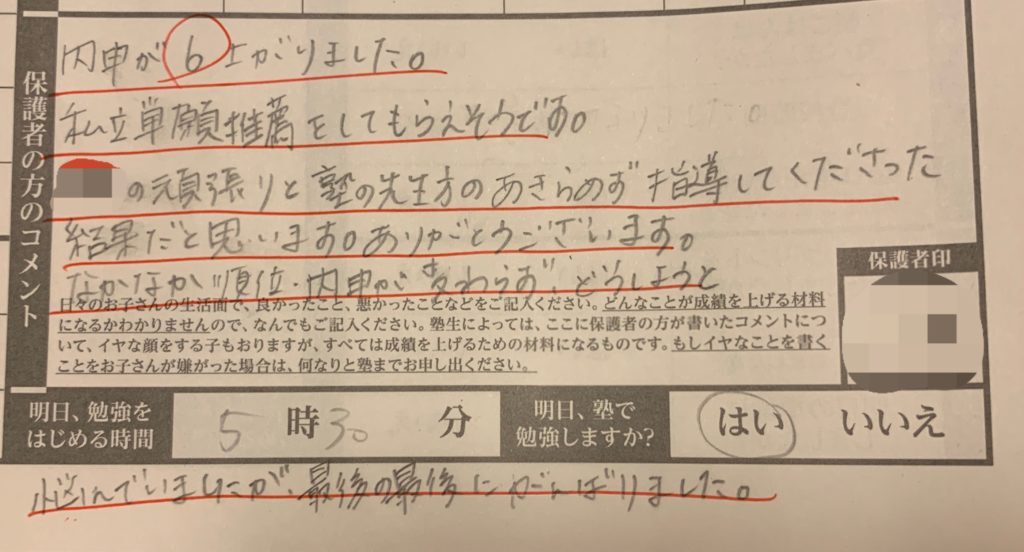 保護者の方のコメント
内申が6上がりました。
私立単願推薦をしてもらえそうです。
の頑張りと塾の先生方のあきらめず指導してくださった
結果だと思います。ありがとうございます。
なかなか順位・内申が変わらず、どうしようと
日々のお子さんの生活面で、良かったこと、悪かったことなどをご記入ください。どんなことが成績を上げる材料
になるかわかりませんので、なんでもご記入ください。塾生によっては、ここに保護者の方が書いたコメントにつ
いて、イヤな顔をする子もおりますが、すべては成績を上げるための材料になるものです。もしイヤなことを書く
ことをお子さんが嫌がった場合は、何なりと塾までお申し出ください。
保護者印
明日、勉強を
はじめる時間
5時30分
明日、塾で
勉強しますか?
はい いいえ
悩んでいましたが、最後の最後にがんばりました。